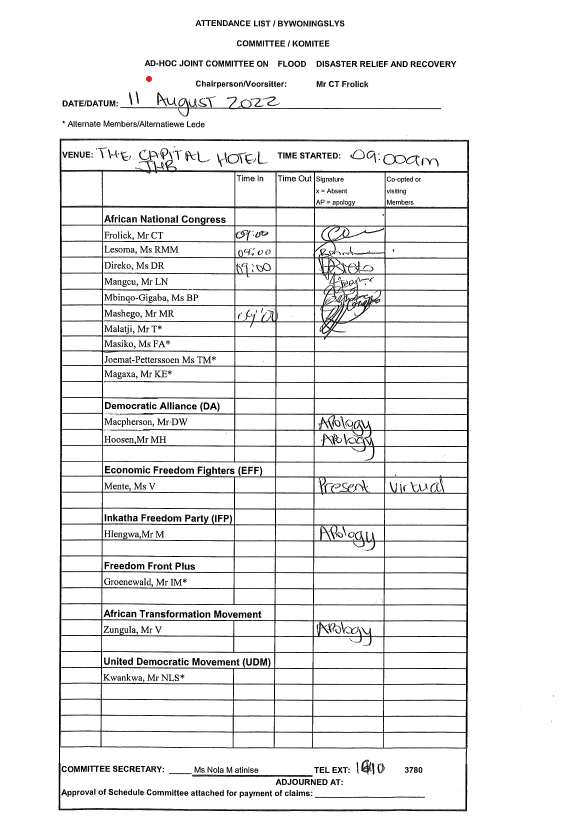 ATTENDANCE LIST / BYWONINGSLYS
COMMITTEE / KOMITEE
AD-HOC JOINT COMMITTEE ON FLOOD DISASTER RELIEF AND RECOVERY
Chairperson/Voorsitter: Mr CT Frolick
DATE/DATUM: 11 August 2022
* Alternate Members/Alternatiewe Lede
VENUE: THE CAPITAL HOTEL JHB TIME STARTED: 09:00am
Time In Time Out Signature Co-opted or
x = Absent visiting
AP = apology Members
African National Congress
Frolick, Mr CT 09:00
Lesoma, Ms RMM 09:00
Direko, Ms DR 09:00
Mangcu, Mr LN
Mbinqo-Gigaba, Ms BP
Mashego, Mr MR
Malatji, Mr T*
Masiko, Ms FA*
Joemat-Petterssoen Ms TM*
Magaxa, Mr KE*
Democratic Alliance (DA)
Macpherson, Mr DW Apology
Hoosen,Mr MH Apology
Economic Freedom Fighters (EFF)
Mente, Ms V Present Virtual
Inkatha Freedom Party (IFP)
Hlengwa,Mr M Apology
Freedom Front Plus
Groenewald, Mr IM*
African Transformation Movement
Zungula, Mr V Apology
United Democratic Movement (UDM)
Kwankwa, Mr NLS*
COMMITTEE SECRETARY: Ms Nola M atinise TEL EXT: 3780
ADJOURNED AT:
Approval of Schedule Committee attached for payment of claims: